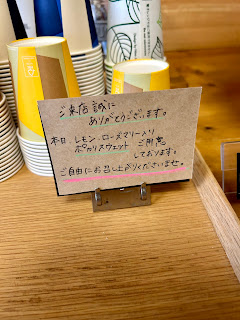 ご来店誠に
ありがとうございます。
本日、レモン、ローズマリー入り
ポカリスウェット ご用意
しております。
ご自由にお召し上がりくださいませ。